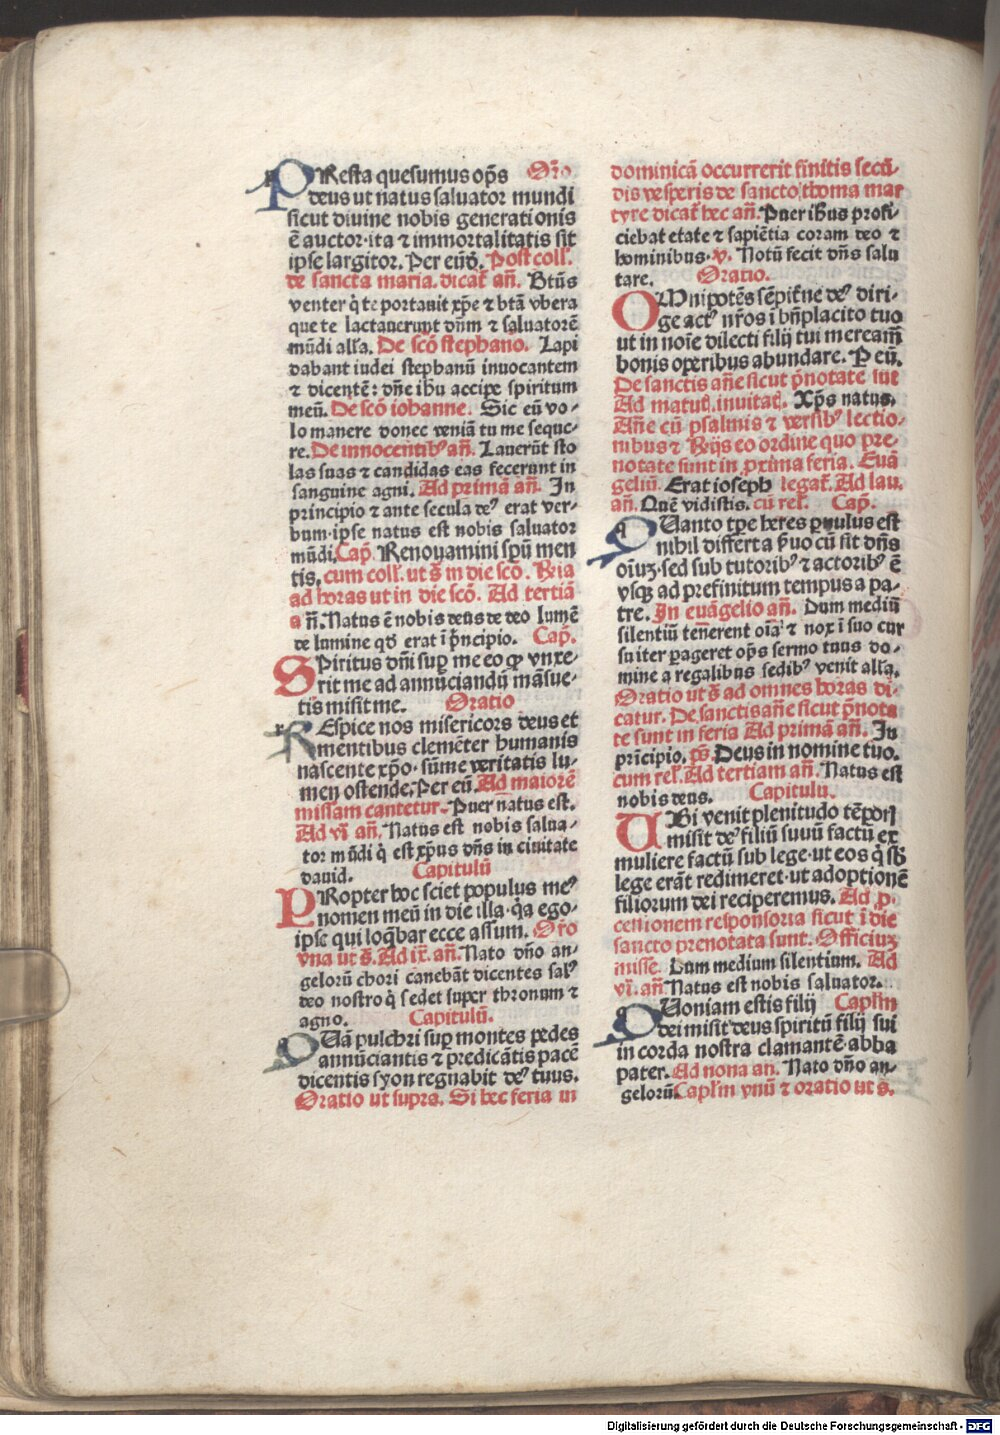 PResta quesumus op̄s Or̄o
deus ut natus saluator mundi
sicut diuine nobis generationis
ē auctor·ita ⁊ immortalitatis sit
ipse largitor. Per eūd̄. Post coll̄.
de sancta maria. dicat̄ an̄. Btūs
venter q̇ te portauit xp̄e ⁊ btā vbera
que te lactauerunt dn̄m ⁊ saluatorē
mūdi all̄a. De sc̄o stephano. Lapi
dabant iudei stephanū inuocantem
⁊ dicentē: dn̄e ih̄u accipe spiritum
meū. De sc̄o iohanne. Sic eū vo-
lo manere donec veniā tu me seque-
re. De innocentibꝰ an̄. Lauerūt sto
las suas ⁊ candidas eas fecerunt in
sanguine agni. Ad primā an̄. In
principio ⁊ ante secula deꝰ erat ver-
bum·ipse natus est nobis saluator
mūdi. Cap̄. Renouamini sp̄ū men
tis, cum coll̄. ut s̄ in die sc̄o. Rn̄a
ad horas ut in die sc̄o. Ad tertiā
an̄. Natus ē nobis deus de deo lumē
de lumine qd̄ erat ī p̄ncipio. Cap̄.
SPiritus dn̄i sup̄ me eo ꝙ vnxe-
rit me ad annūciandū māsue-
tis misit me. Oratio
REspice nos misericors deus et
mentibus clemēter humanis
nascente xp̄o· sūme veritatis lu-
men ostende. Per eū. Ad maiorē
missam cantetur. Puer natus est.
Ad vī an̄. Natus est nobis salua-
tor mūdi q̇ est xp̄us dn̄s in ciuitate
dauid. Capitulū
PRopter hoc sciet populus meꝰ
nomen meū in die illa·q̇a ego-
ipse qui loq̄bar ecce assum. Or̄o
vna ut s̄. Ad ix̄. an̄. Nato dn̄o an-
gelorū chori canebāt dicentes salꝰ
deo nostro q̇ sedet super thronum ⁊
agno. Capitulū.
QUā pulchri sup̄ montes pedes
annūciantis ⁊ predicātis pacē
dicentis syon regnabit deꝰ tuus.
Oratio ut supra. Si hec feria in
dominicā occurrerit finitis secū-
dis vesperis de sancto thoma mar
tyre dicat̄ hec an̄. Puer ih̄us profi-
ciebat etate ⁊ sapiētia coram deo ⁊
hominibus· v̄. Notū fecit dn̄s salu
tare. Oratio.
OMnipotēs sēpit̄ne deꝰ diri-
ge actꝰ nr̄os ī bn̄placito tuo
ut in noīe dilecti filij tui meream̄
bonis operibus abundare. P eū.
De sanctis an̄e sicut p̄notate sut
Ad matut̄. inuitat̄. Xp̄s natus.
An̄e cū psalmis ⁊ versibꝰ lectio-
nibus ⁊ Rn̄js eo ordine quo pre-
notate sunt in prima feria. Euā
geliū. Erat ioseph legat̄. Ad lau.
an̄. Quē vidistis. cū rel̄. Cap̄.
QUanto tp̄e heres paruulus est
nihil differt a ẜuo cū sit dn̄s
oīuꝫ·sed sub tutoribꝰ ⁊ actoribꝰ ē
vsqꝫ ad prefinitum tempus a pa-
tre. In euāgelio an̄. Dum mediū
silentiū tenerent oīaꝰ ⁊ nox ī suo cur
su iter p̄ageret op̄s sermo tuus do-
mine a regalibus sedibꝰ venit all̄a.
Oratio ut s̄ ad omnes horas di-
catur. De sanctis an̄e sicut p̄nota
te sunt in feria Ad primā an̄. In
prīcipio. p̄s. Deus in nomine tuo.
cum rel̄. Ad tertiam an̄. Natus est
nobis deus. Capitulū.
UBi venit plenitudo tēporꝭ
misit deꝰ filiū suuū factū ex
muliere factū sub lege·ut eos q̇ sb̄
lege erāt redimeret·ut adoptionē
filiorum dei reciperemus. Ad p̄-
cessionem responsoria sicut ī die
sancto prenotata sunt. Officiuꝫ
misse. Dum medium silentium. Ad
vī. an̄ Natus est nobis saluator.
QUoniam estis filij Capl̄m
dei misit deus spiritū filij sui
in corda nostra clamantē·abba
pater. Ad nona an. Nato dn̄o an-
gelorū. Capl̄m vnū ⁊ oratio ut s̄.
Digitalisierung gefördert durch die Deutsche Forschungsgemeinschaft - DFG